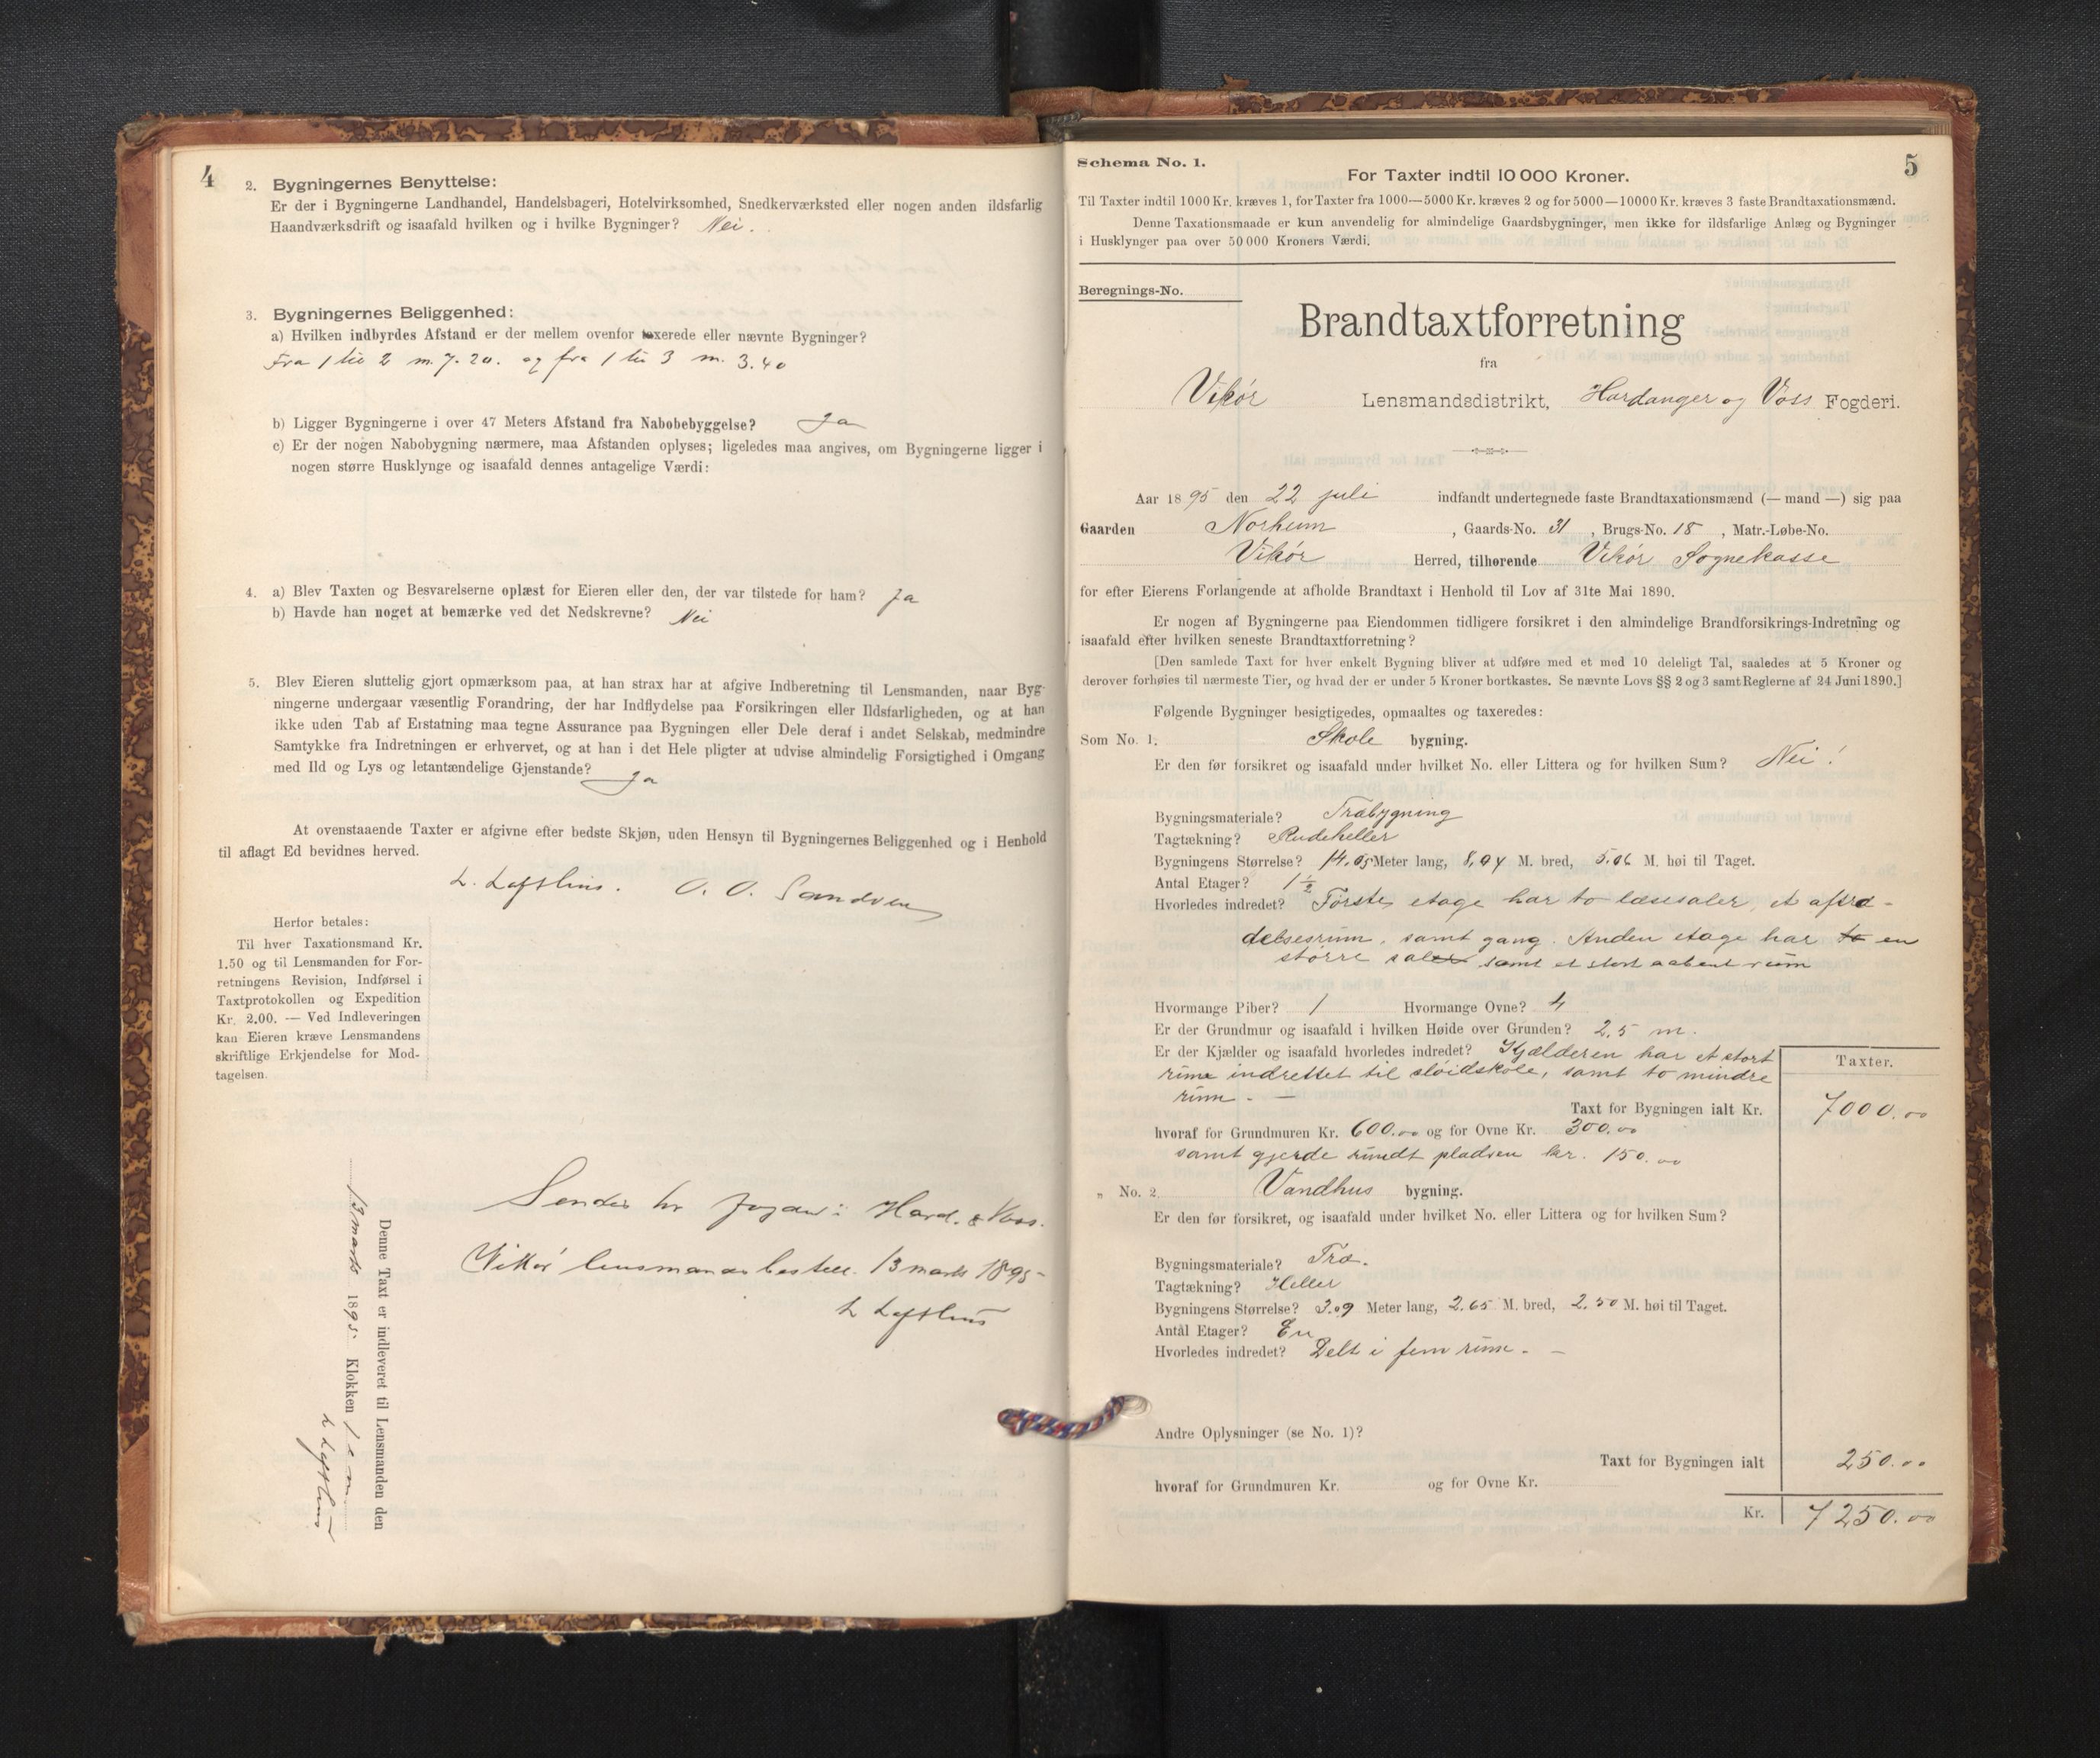 4
2. Bygningernes Benyttelse:
Er der i Bygningerne Landhandel, Handelsbageri, Hotelvirksomhed, Snedkerværksted eller nogen anden ildsfarlig
Haandværksdrift og isaafald hvilken og i hvilke Bygninger? Nei.
3. Bygningernes Beliggenhed:
a) Hvilken indbyrdes Afstand er der mellem ovenfor taxerede eller nævnte Bygninger?
Fra 1 til 2 m. 7.20. og fra 1 til 3 m. 3.40
b) Ligger Bygningerne i over 47 Meters Afstand fra Nabobebyggelse? Ja
c) Er der nogen Nabobygning nærmere, maa Afstanden oplyses; ligeledes maa angives, om Bygningerne ligger i
nogen større Husklynge og isaafald dennes antagelige Værdi:
4. a) Blev Taxten og Besvarelserne oplæst for Eieren eller den, der var tilstede for ham? Ja
b) Havde han noget at bemærke ved det Nedskrevne? Nei
5. Blev Eieren sluttelig gjort opmærksom paa, at han strax har at afgive Indberetning til Lensmanden, naar Byg-
ningerne undergaar væsentlig Forandring, der har Indflydelse paa Forsikringen eller Ildsfarligheden, og at han
ikke uden Tab af Erstatning maa tegne Assurance paa Bygningen eller Dele deraf i andet Selskab, medmindre
Samtykke fra Indretningen er erhvervet, og at han i det Hele pligter at udvise almindelig Forsigtighed i Omgang
med Ild og Lys og letantændelige Gjenstande? Ja
At ovenstaaende Taxter er afgivne efter bedste Skjøn, uden Hensyn til Bygningernes Beliggenhed og i Henhold
til aflagt Ed bevidnes herved.
L. Lofthus. O. O. Sandven
Herfor betales:
Til hver Taxationsmand Kr.
1.50 og til Lensmanden for For-
retningens Revision, Indførsel i
Taxtprotokollen og Expedition
Kr. 2.00. — Ved Indleveringen
kan Eieren kræve Lensmandens
skriftlige Erkjendelse for Mod-
tagelsen.
Sendes hr fogden i Hard. & Voss.
Vikør lensmandsbestill. 13 marts 1895
L Lofthus
Denne Taxt er indleveret til Lensmanden den
13 marts 1895 Klokken 1 em
L Lofthus
5
Schema No. 1.
For Taxter indtil 10 000 Kroner.
Til Taxter indtil 1000 Kr. kræves 1, for Taxter fra 1000—5000 Kr. kræves 2 og for 5000—10000 Kr. kræves 3 faste Brandtaxationsmænd.
Denne Taxationsmaade er kun anvendelig for almindelige Gaardsbygninger, men ikke for ildsfarlige Anlæg og Bygninger
i Husklynger paa over 50 000 Kroners Værdi.
Beregnings-No.
Brandtaxtforretning
fra
Vikør Lensmandsdistrikt, Hardanger og Voss Fogderi.
Aar 1895 den 22 juli indfandt undertegnede faste Brandtaxationsmænd (— mand —) sig paa
Gaarden Norheim, Gaards-No. 31, Brugs-No. 18, Matr.-Løbe-No.
Vikør Herred, tilhørende Vikør Sognekasse
for efter Eierens Forlangende at afholde Brandtaxt i Henhold til Lov af 31te Mai 1890.
Er nogen af Bygningerne paa Eiendommen tidligere forsikret i den almindelige Brandforsikrings-Indretning og
isaafald efter hvilken seneste Brandtaxtforretning?
[Den samlede Taxt for hver enkelt Bygning bliver at udføre med et med 10 deleligt Tal, saaledes at 5 Kroner og
derover forhøies til nærmeste Tier, og hvad der er under 5 Kroner bortkastes. Se nævnte Lovs §§ 2 og 3 samt Reglerne af 24 Juni 1890.]
Følgende Bygninger besigtigedes, opmaaltes og taxeredes:
Som No. 1. Skole bygning.
Er den før forsikret og isaafald under hvilket No. eller Littera og for hvilken Sum? Nei!
Bygningsmateriale? Træbygning
Tagtækning? Rudeheller
Bygningens Størrelse? 14.05 Meter lang, 8,04 M. bred, 5.06 M. høi til Taget.
Antal Etager? 1 1/2
Hvorledes indredet? Første etage har to læsesaler, et aftræ-
delsesrum, samt gang. Anden etage har to en
større saler samt et stort aabent rum
Hvormange Piber? 1 Hvormange Ovne? 4
Er der Grundmur og isaafald i hvilken Høide over Grunden? 2,5 m.
Er der Kjælder og isaafald hvorledes indredet? Kjælderen har et stort
rum indrettet til sløidskole, samt to mindre
rum. —
Taxter.
Taxt for Bygningen ialt Kr. 7000.00
hvoraf for Grundmuren Kr. 600.00 og for Ovne Kr. 300.00
samt gjerde rundt pladsen kr. 150.00
„ No. 2. Vandhus bygning.
Er den før forsikret, og isaafald under hvilket No. eller Littera og for hvilken Sum?
Bygningsmateriale? Træ.
Tagtækning? Heller
Bygningens Størrelse? 3.09 Meter lang, 2.65 M. bred, 2.50 M. høi til Taget.
Antal Etager? En
Hvorledes indredet? Delt i fem rum. —
Andre Oplysninger (se No. 1)?
Taxt for Bygningen ialt 250.00
hvoraf for Grundmuren Kr. og for Ovne Kr.
Kr. 7250.00